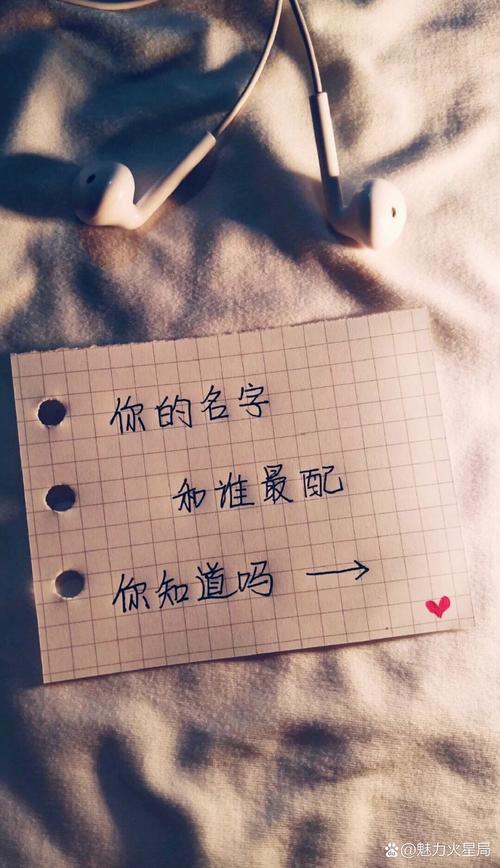 你的名字
和谁最配
你知道吗 →
@魅力火星局